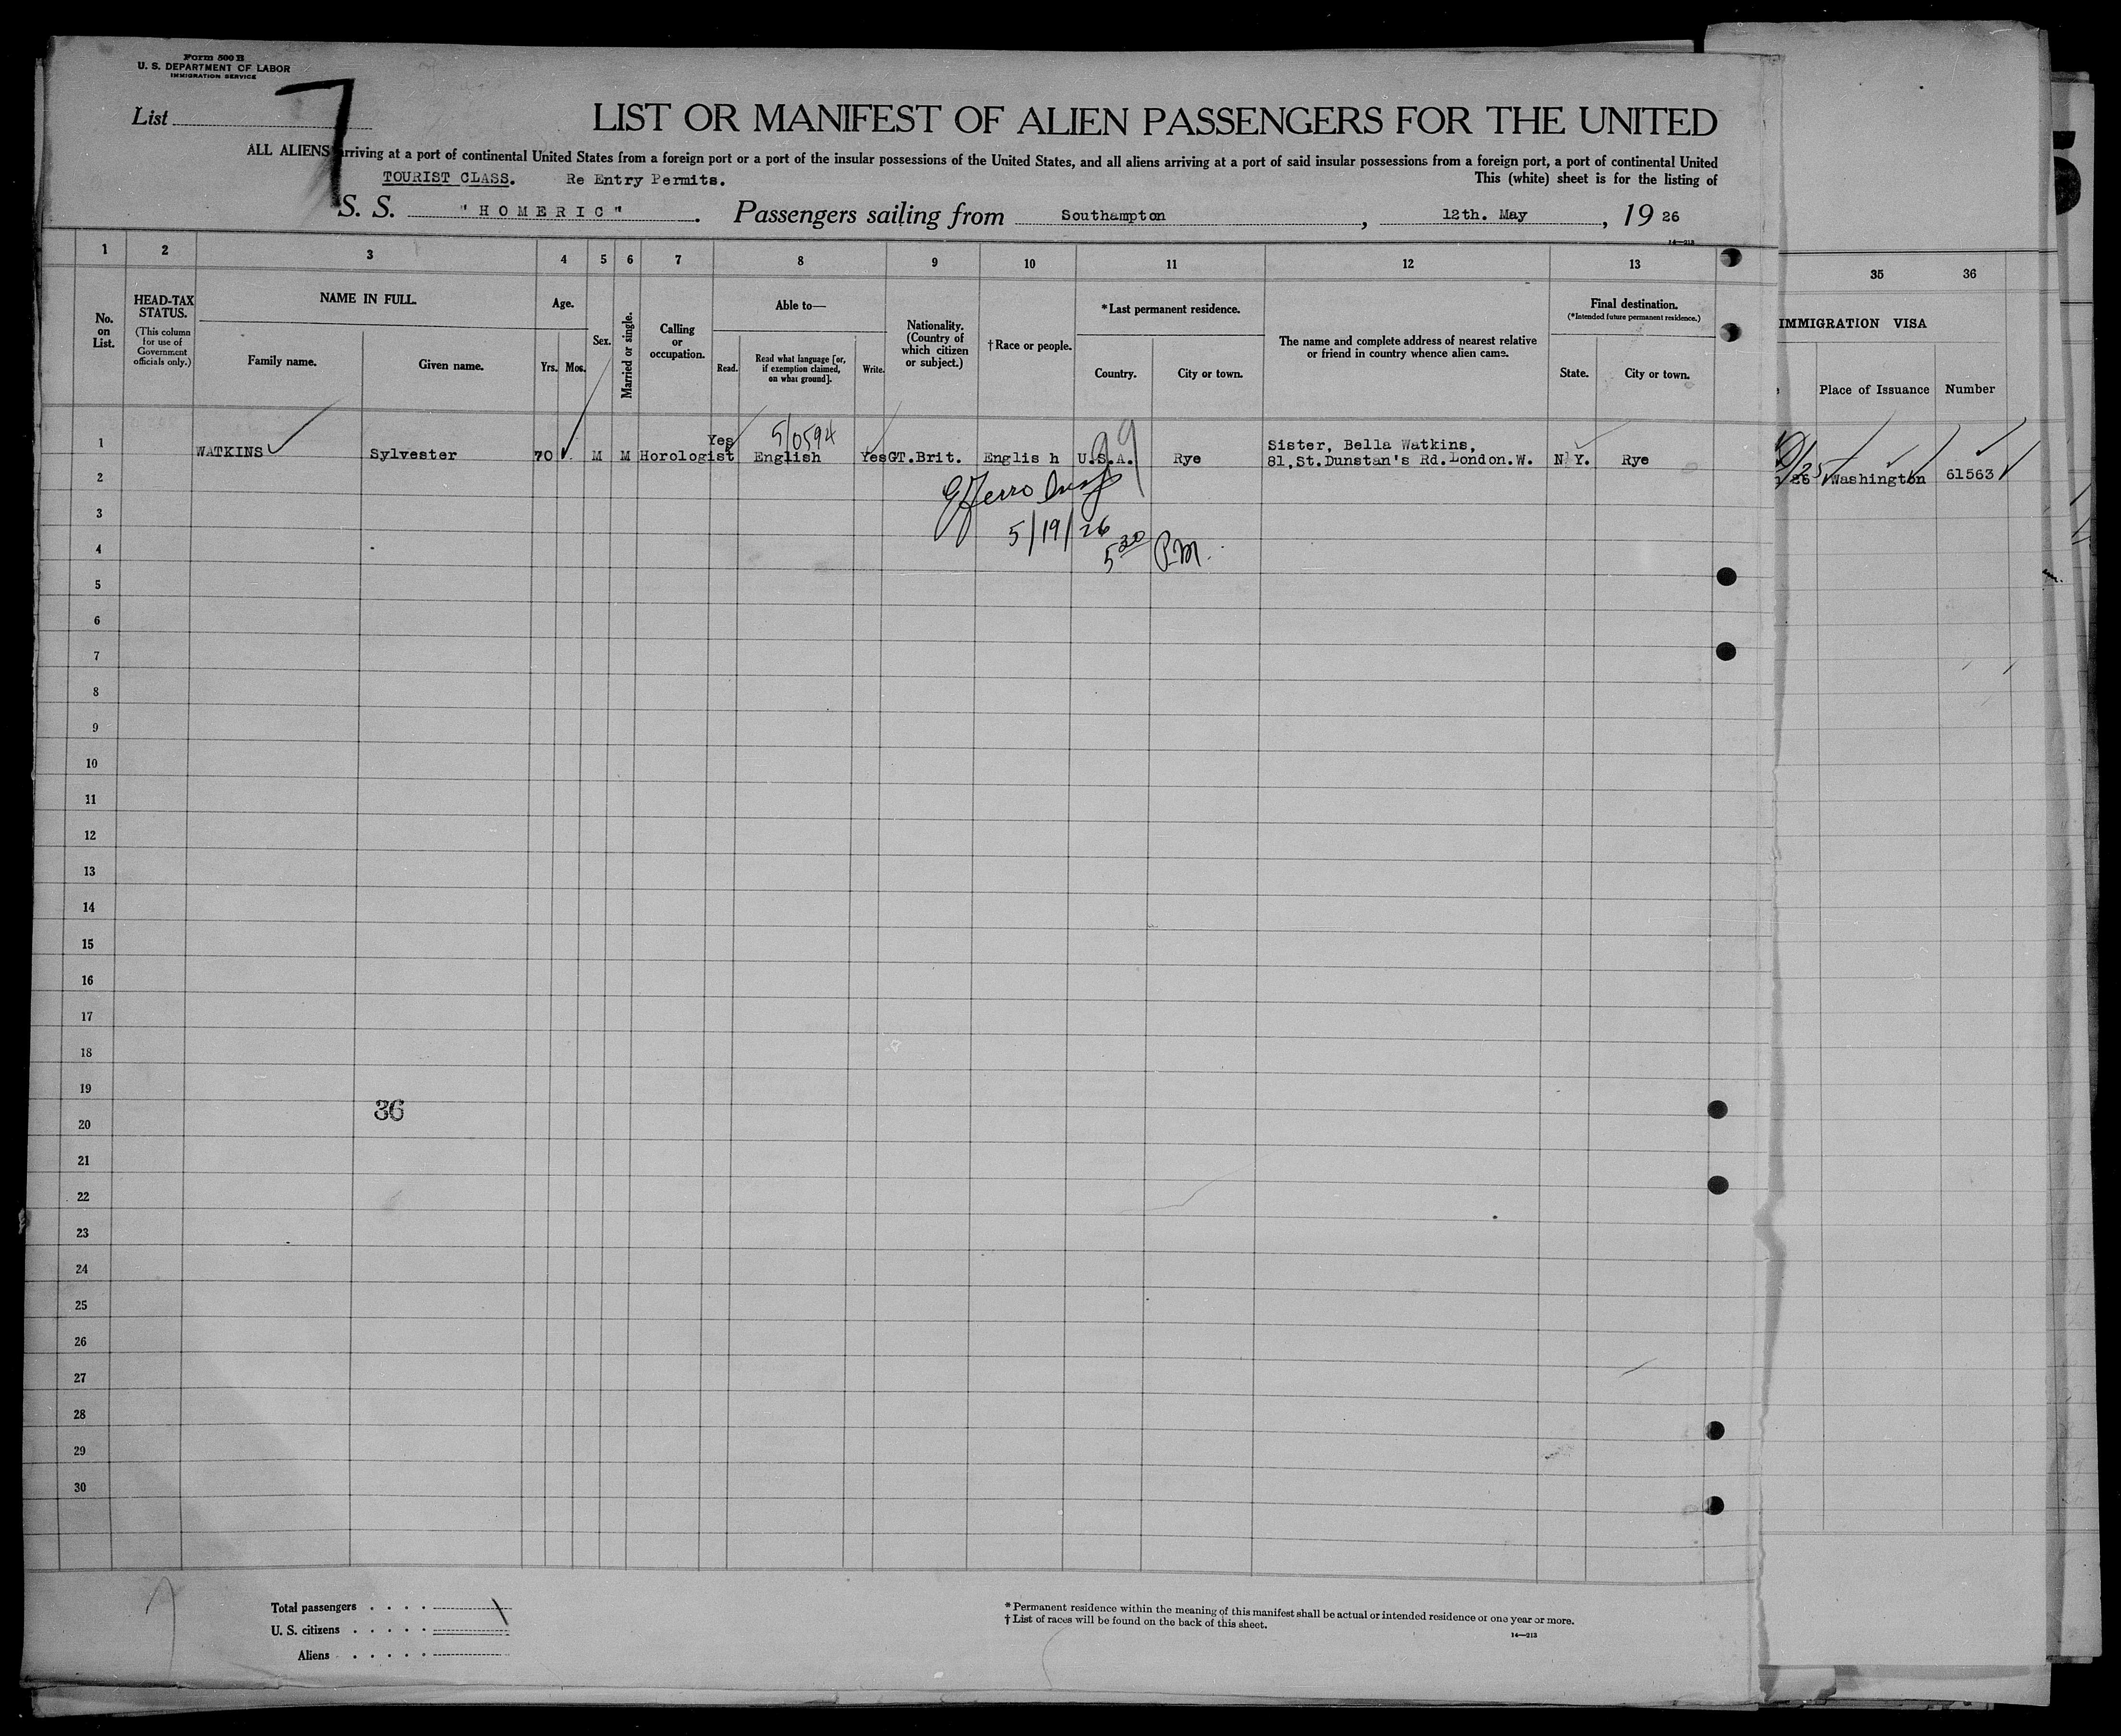 Form 500 B
U. S. DEPARTMENT OF LABOR
IMMIGRATION SERVICE
List 7
LIST OR MANIFEST OF ALIEN PASSENGERS FOR THE UNITED
ALL ALIENS arriving at a port of continental United States from a foreign port or a port of the insular possessions of the United States, and all aliens arriving at a port of said insular possessions from a foreign port, a port of continental United
TOURIST CLASS. Re Entry Permits. This (white) sheet is for the listing of
S. S. "HOMERIC". Passengers sailing from Southampton, 12th. May, 19 26
14—213
1 2 3 4 5 6 7 8 9 10 11 12 13 35 36
No. on List.
HEAD-TAX STATUS.
(This column for use of Government officials only.)
NAME IN FULL.
Family name. Given name.
Age.
Yrs. Mos.
Sex.
Married or single.
Calling or occupation.
Able to—
Read. Read what language [or, if exemption claimed, on what ground]. Write.
Nationality. (Country of which citizen or subject.)
†Race or people.
*Last permanent residence.
Country. City or town.
The name and complete address of nearest relative or friend in country whence alien came.
Final destination.
(*Intended future permanent residence.)
State. City or town.
IMMIGRATION VISA
Place of Issuance Number
5/0594
1 WATKINS Sylvester 70 M M Horologist Yes English Yes GT.Brit. Englis h U.S.A. Rye Sister, Bella Watkins,
81,St.Dunstan's Rd.London.W. N Y. Rye
Washington 61563
2
3
5/19/26
4
5 30 P.M.
5
6
7
8
9
10
11
12
13
14
15
16
17
18
19
36
20
21
22
23
24
25
26
27
28
29
30
Total passengers
U. S. citizens
Aliens
* Permanent residence within the meaning of this manifest shall be actual or intended residence of one year or more.
† List of races will be found on the back of this sheet.
14—213
5